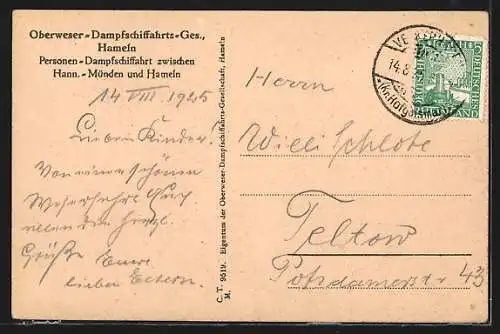 Oberweser-Dampfschiffahrts-Ges.,
Hameln
Personen-Dampfschiffahrt zwischen
Hann.-Münden und Hameln
14 VIII. 1925
Lieben Kinder!
Von einer schönen
Weserfahrt Euch
allen die herzl.
Grüße Eure
lieben Eltern.
C. T. M. 9519. Eigentum der Oberweser-Dampfschiffahrts-Gesellschaft, Hameln
14.8.
Herrn
Willi Schlote
Teltow
Potsdamerstr 43